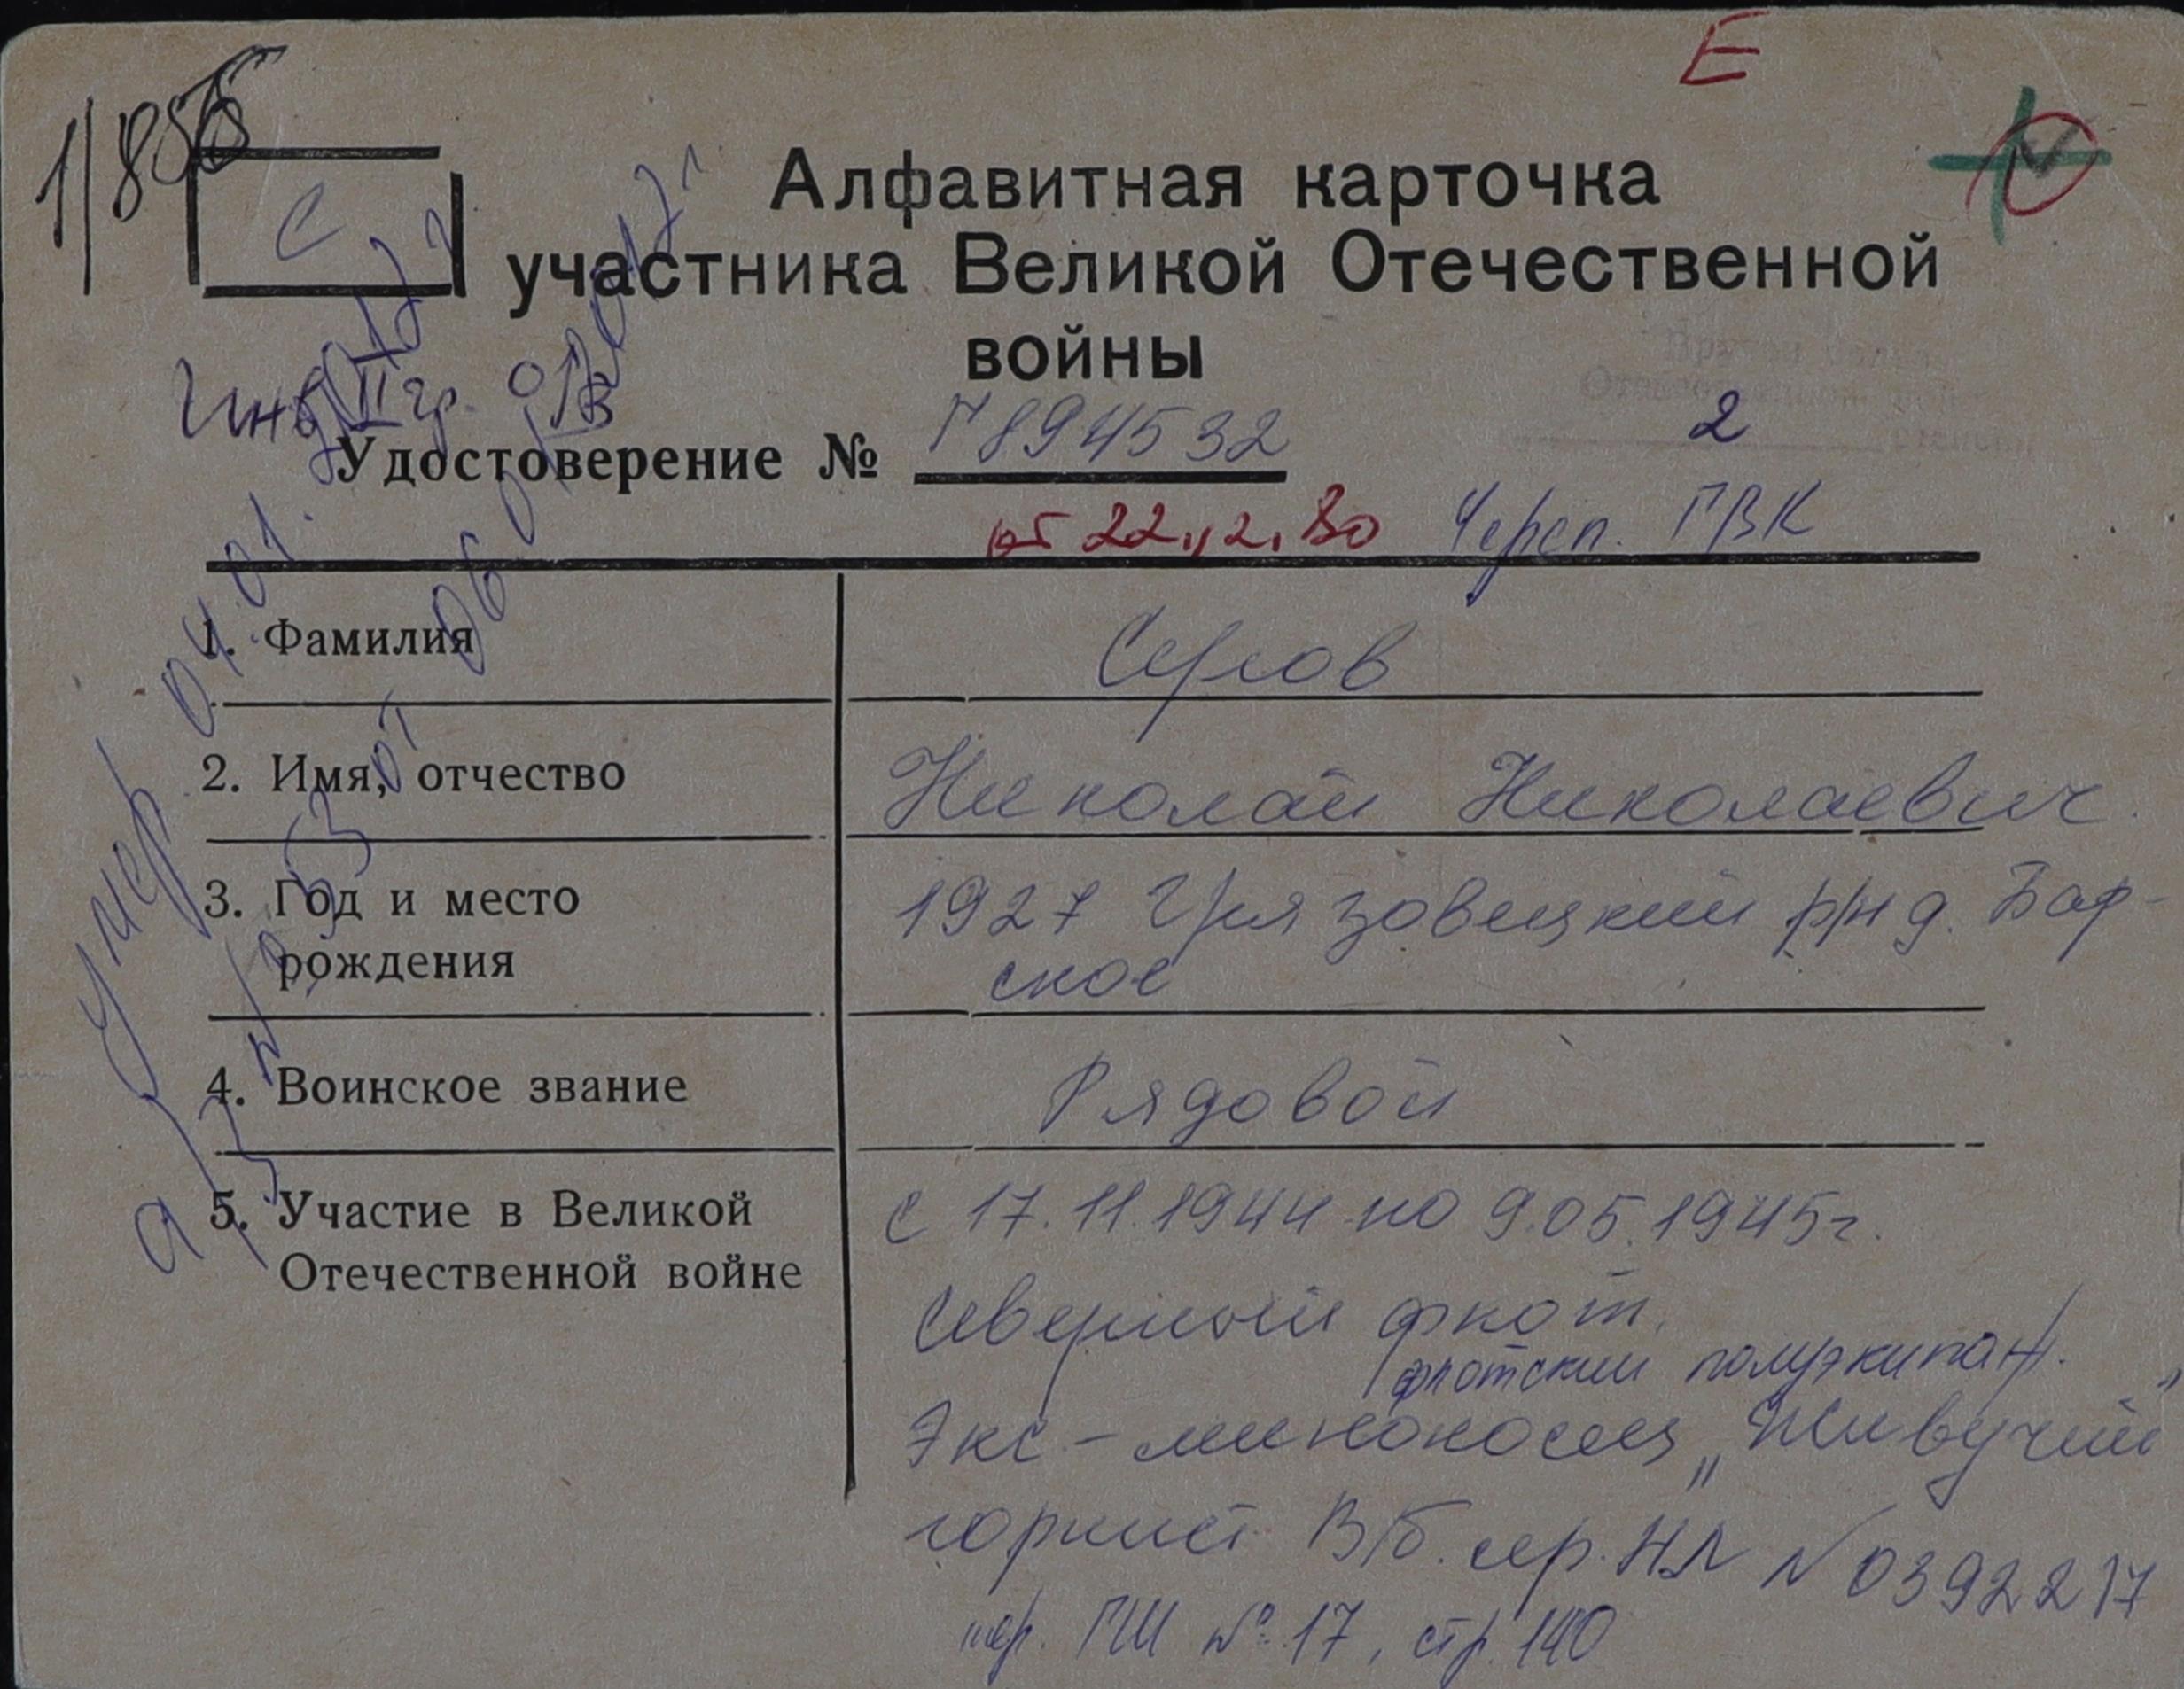 Е
1/856
С
Алфавитная карточка
участника Великой Отечественной
войны
Инв II гр. ОВ
2
Удостоверение № Г 894532
от 22.12.80 Череп. ГВК
1. Фамилия Серов
2. Имя, отчество Николай Николаевич.
3. Год и место 1927 Грязовецкий р/н д. Бар-
рождения ское
4. Воинское звание Рядовой
5. Участие в Великой с 17.11.1944 по 9.05.1945г.
Отечественной войне
Северный флот,
флотский полуэкипаж.
Экс-миноносец „Живучий"
горнист В/б. сер. НЛ № 0392217
пер. ГШ № 17, стр. 140
Умер 04.01.
от 06.01